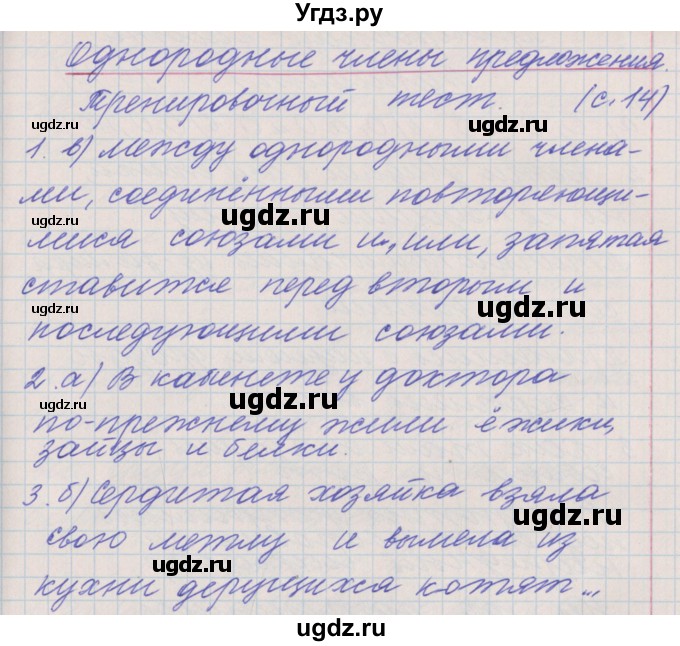 Угдз.ру
Однородные члены предложения.
Тренировочный тест. (с. 14)
ugdz.ru
ugdz.ru
1. в) между однородными члена-
ми, соединёнными повторяющи-
ugdz.ru
ugdz.ru
мися союзами и, или, запятая
ставится перед вторым и
ugdz.ru
ugdz.ru
последующими союзами.
2. а) В кабинете у доктора
ugdz.ru
ugdz.ru
по-прежнему жили ёжики,
зайцы и белки.
3. б) Сердитая хозяйка взяла
ugdz.ru
свою метлу и вымела из
ugdz.ru
кухни дерущихся котят...
ugdz.ru
ugdz.ru